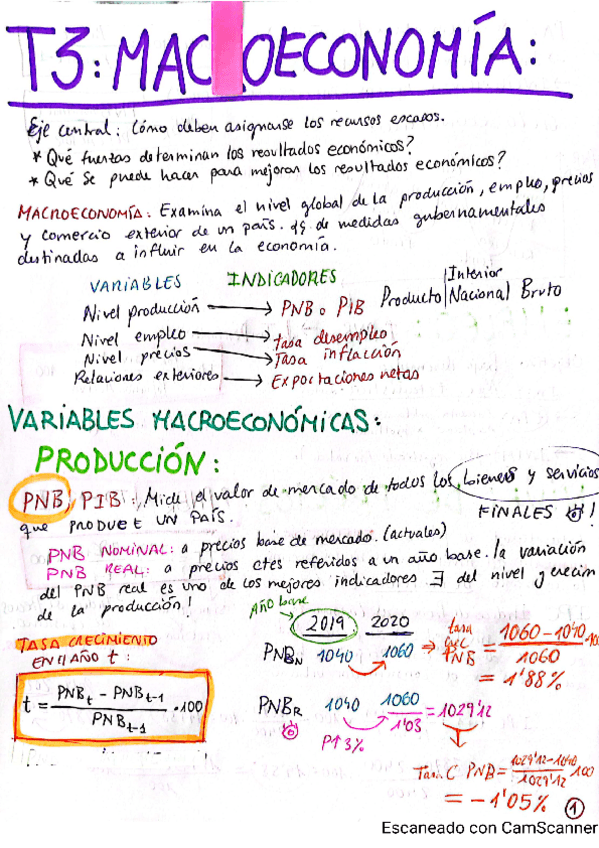 T3: MACROECONOMÍA:
Eje central: Cómo deben asignarse los recursos escasos.
* Qué fuerzas determinan los resultados económicos?
* Qué se puede hacer para mejorar los resultados económicos?
MACROECONOMÍA: Examina el nivel global de la producción, empleo, precios
y comercio exterior de un país. de medidas gubernamentales
destinadas a influir en la economía.
VARIABLES INDICADORES
Nivel producción → PNB o PIB Producto Interior Nacional Bruto
Nivel empleo → tasa desempleo
Nivel precios → Tasa inflacción
Relaciones exteriores → Exportaciones netas
VARIABLES MACROECONÓMICAS:
PRODUCCIÓN:
PNB, PIB: Mide el valor de mercado de todos los bienes y servicios
que produce UN PAÍS. FINALES !
PNB NOMINAL: a precios base de mercado. (actuales)
PNB REAL: a precios ctes referidos a un año base. la variación
del PNB real es uno de los mejores indicadores ∃ del nivel y crecim
de la producción!
TASA CRECIMIENTO
EN 1 AÑO t:
t = PNBt - PNBt-1 / PNBt-1 · 100
AÑO base
2019 2020
PNBN 1040 1060 ⇒ tasa crec PNB = 1060-1040 / 1060 · 100
= 1'88%
PNBR 1040 1060 / 1'03 = 1029'12
P↑ 3%
Tasa C PNB = 1029'12-1040 / 1029'12 · 100
= -1'05%
1
Escaneado con CamScanner